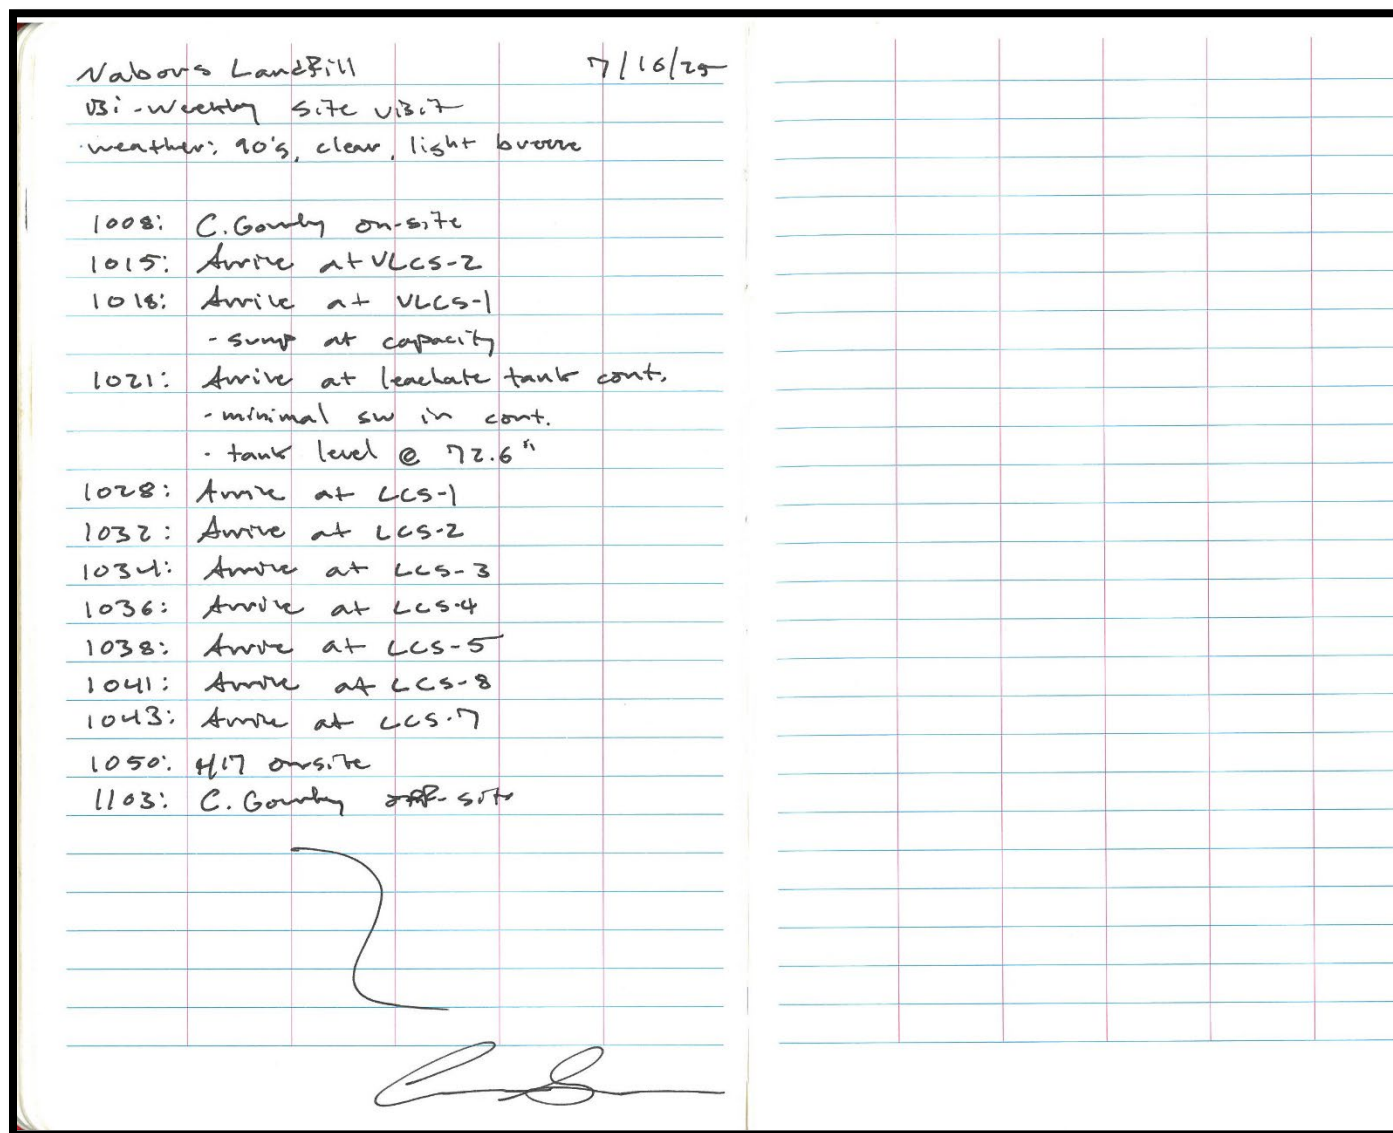 Nabors Landfill 7/16/25
Bi-weekly site visit
weather: 90's, clear, light breeze
1008: C. Gormby on-site
1015: Arrive at VLCS-2
1018: Arrive at VLCS-1
- sump at capacity
1021: Arrive at leachate tank cont.
- minimal sw in cont.
- tank level @ 72.6"
1028: Arrive at LCS-1
1032: Arrive at LCS-2
1034: Arrive at LCS-3
1036: Arrive at LCS-4
1038: Arrive at LCS-5
1041: Arrive at LCS-8
1043: Arrive at LCS-7
1050: onsite
1103: C. off-site